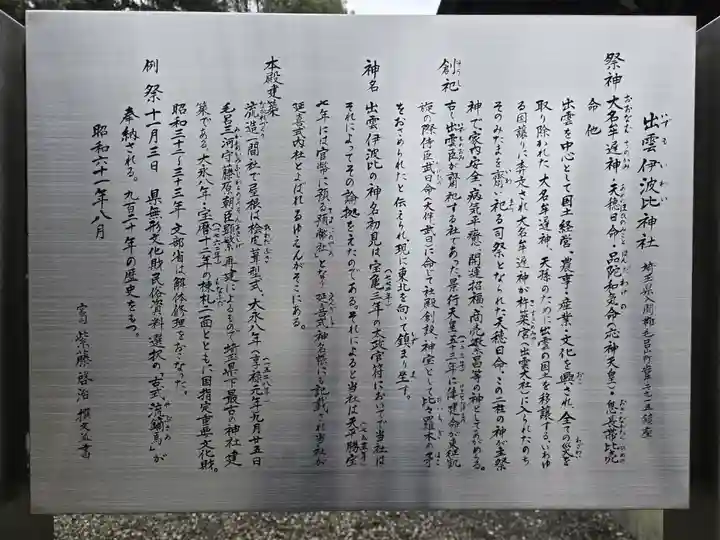 出雲伊波比神社 埼玉県入間郡毛呂山町
いずもいわい
祭神 大名牟遅神・天穂日命・品陀和気命(応神天皇)・息長帯比売
命 他
出雲を中心として国土経営、農事・産業・文化を興され、全ての災を
取り除かれた大名牟遅神、天孫のために出雲の国土を移譲する、いわゆ
る国譲りに奔走され大名牟遅神が杵築宮(出雲大社)に入られたのち
そのみたまを齋い祀る司祭となられた天穂日命、この二柱の神が主祭
神で家内安全・病気平癒・開運招福・商売繁昌等の神としてあがめる。
創祀 古く出雲臣が齋祀する社であった。景行天皇五十三年に倭建命が東征凱
旋の際侍臣武日命(大伴武日)に命じて社殿創設、神宝として比々羅木の矛
をおさめられたと伝えられ、現に東北を向いて鎮まり坐す。
神名 出雲伊波比の神名初見は宝亀三年の太政官符においてで当社は
それによってその論拠をえたのである。それによると当社は天平勝宝
七年には官幣に預る預幣社となり延喜式神名帳にも記載され当社が
延喜式内社とよばれるゆえんがそこにある。
本殿建築
流造一間社で屋根は桧皮葺型式、大永八年(享禄元年九月廿五日
毛呂三河守藤原朝臣顕繁再建によるもので埼玉県下最古の神社建
築である。大永八年・宝暦十二年の棟札二面とともに国指定重要文化財。
昭和三十二〜三十三年文部省は解体修理をおこなった。
例祭 十一月三日 県無形文化財民俗資料選択の「古式流鏑馬」が
奉納される。九百二十年の歴史をもつ。
昭和六十一年八月
宮司 紫藤啓治 撰文並書